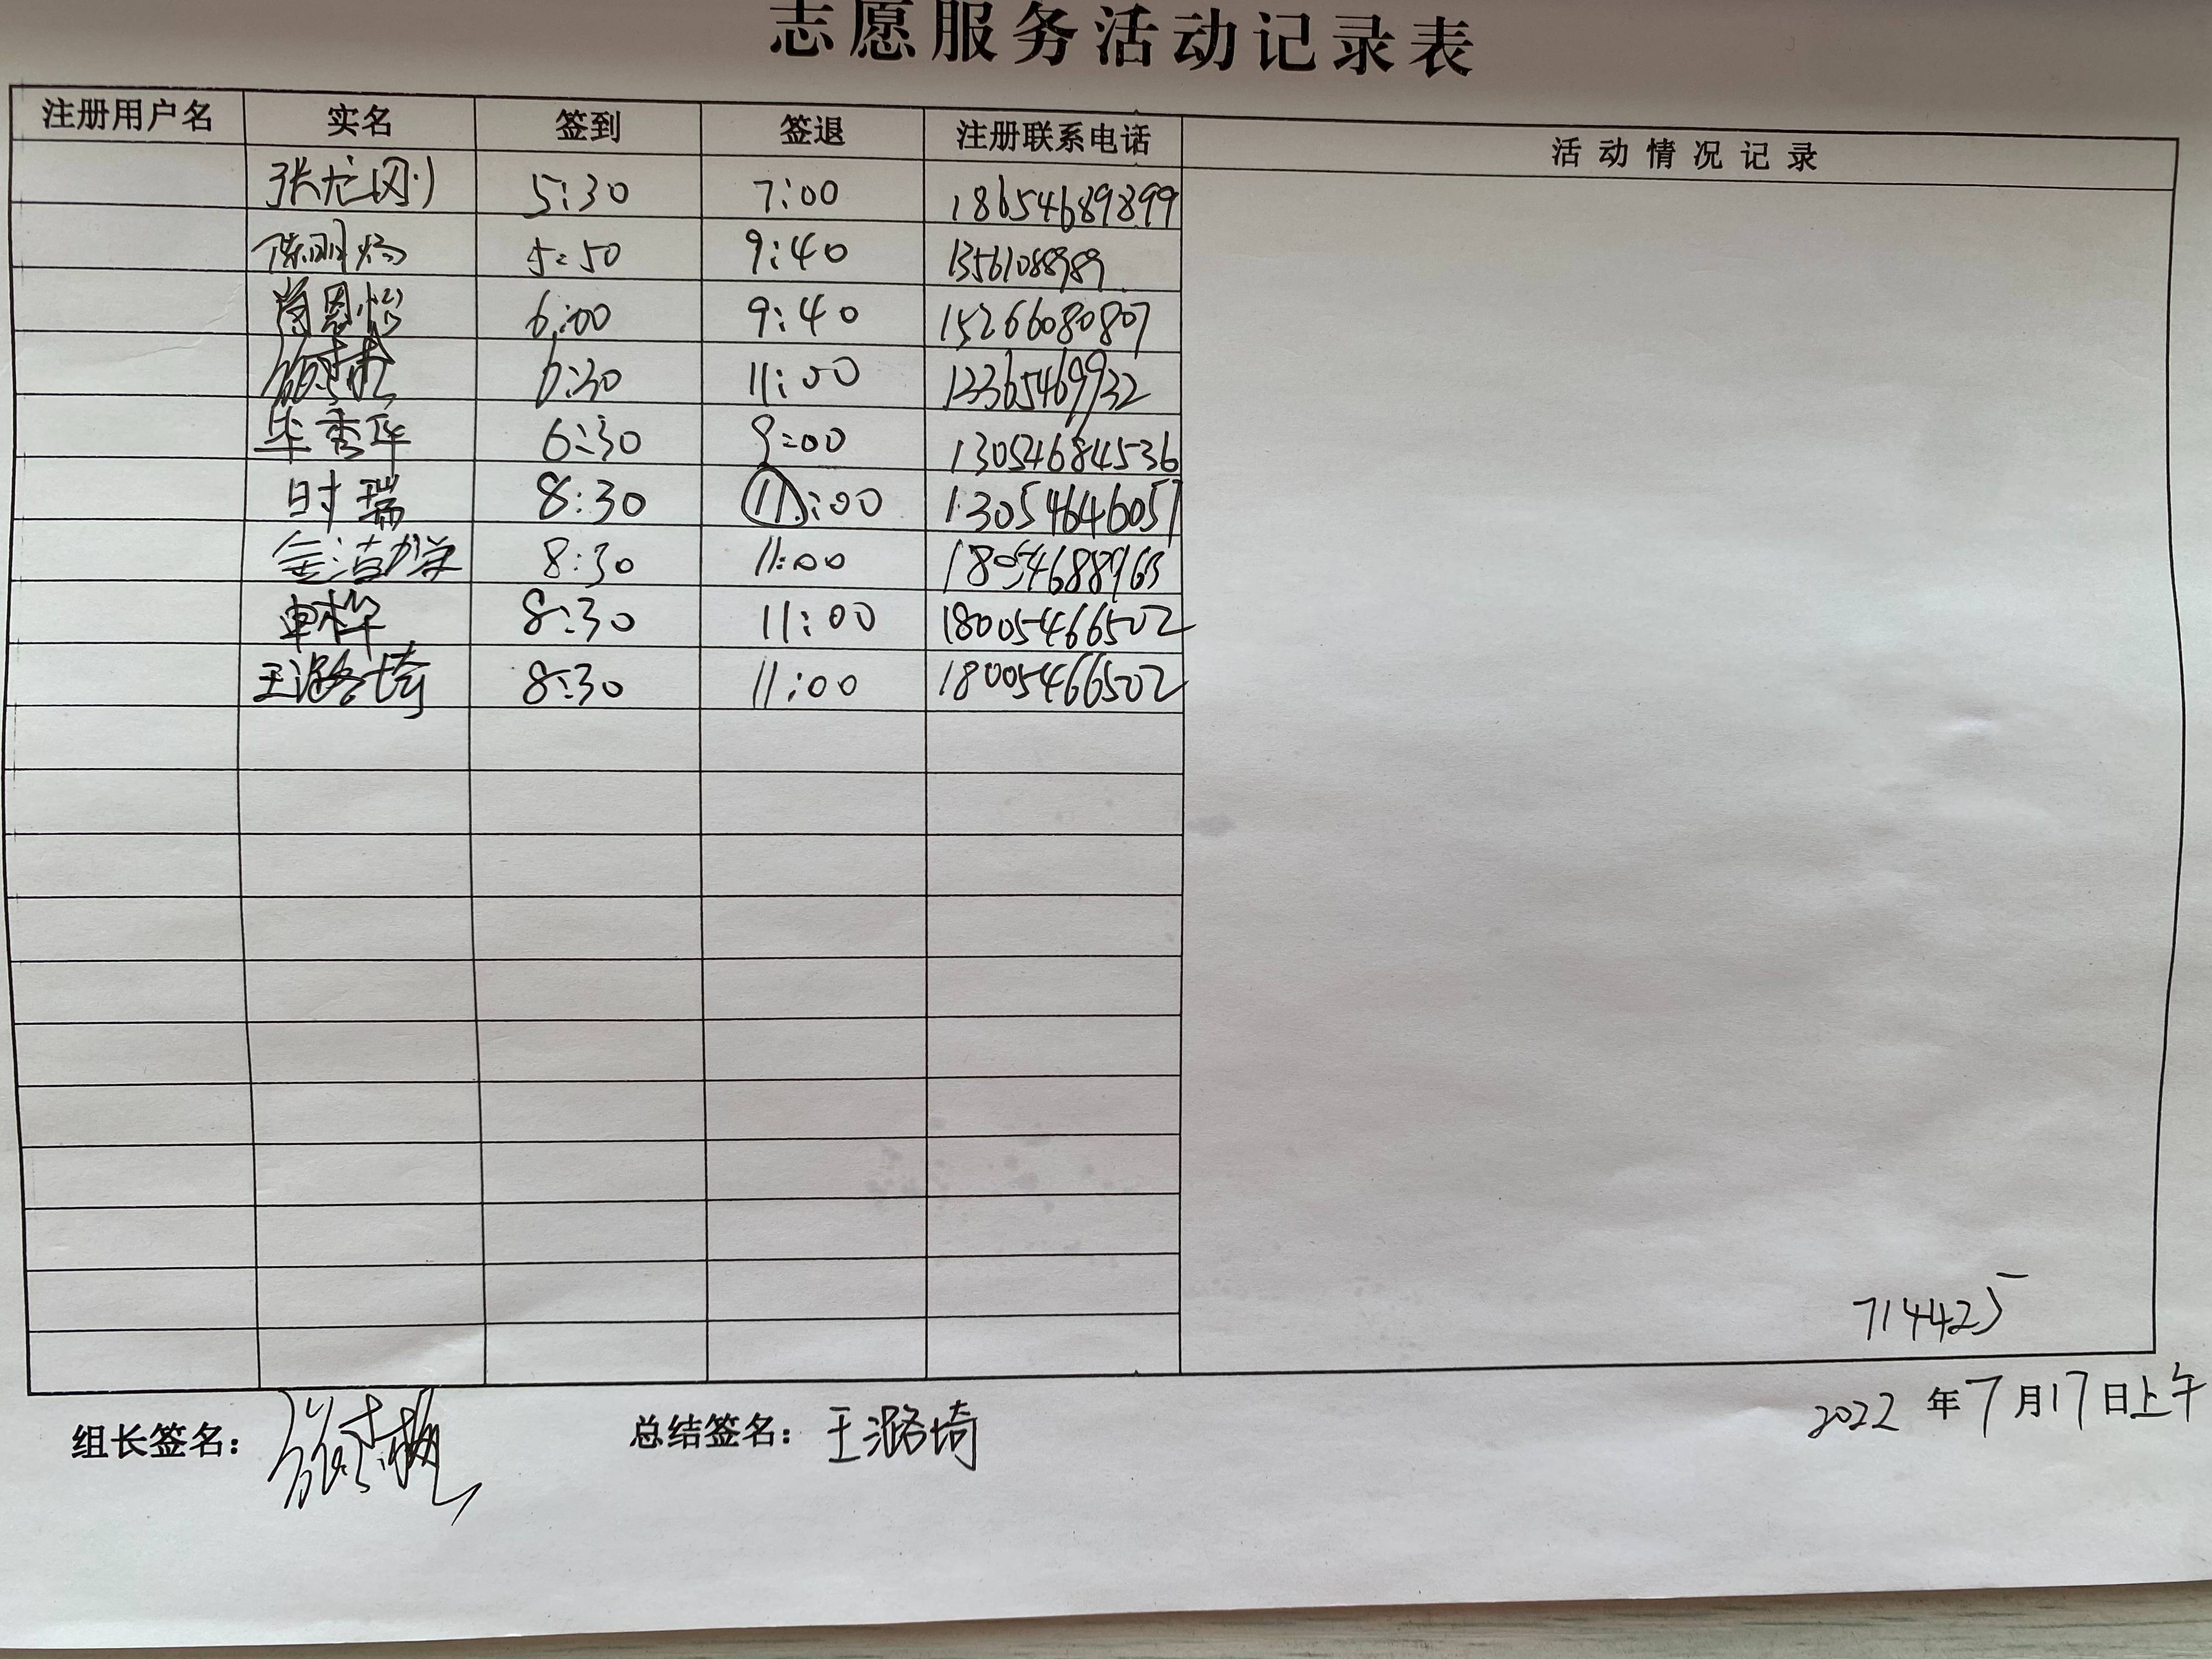 志愿服务活动记录表
注册用户名 实名 签到 签退 注册联系电话 活动情况记录
张龙刚 5:30 7:00 18654689899
5:50 9:40 13561088989
6:00 9:40 15266080807
6:30 11:00
毕秀华 6:30 9:00 13054684536
时瑞 8:30 11:00 13054646057
8:30 11:00 18054688963
8:30 11:00 18005466502
王潞埼 8:30 11:00 18005466502
714425
组长签名： 总结签名：王潞埼 2022年7月17日上午